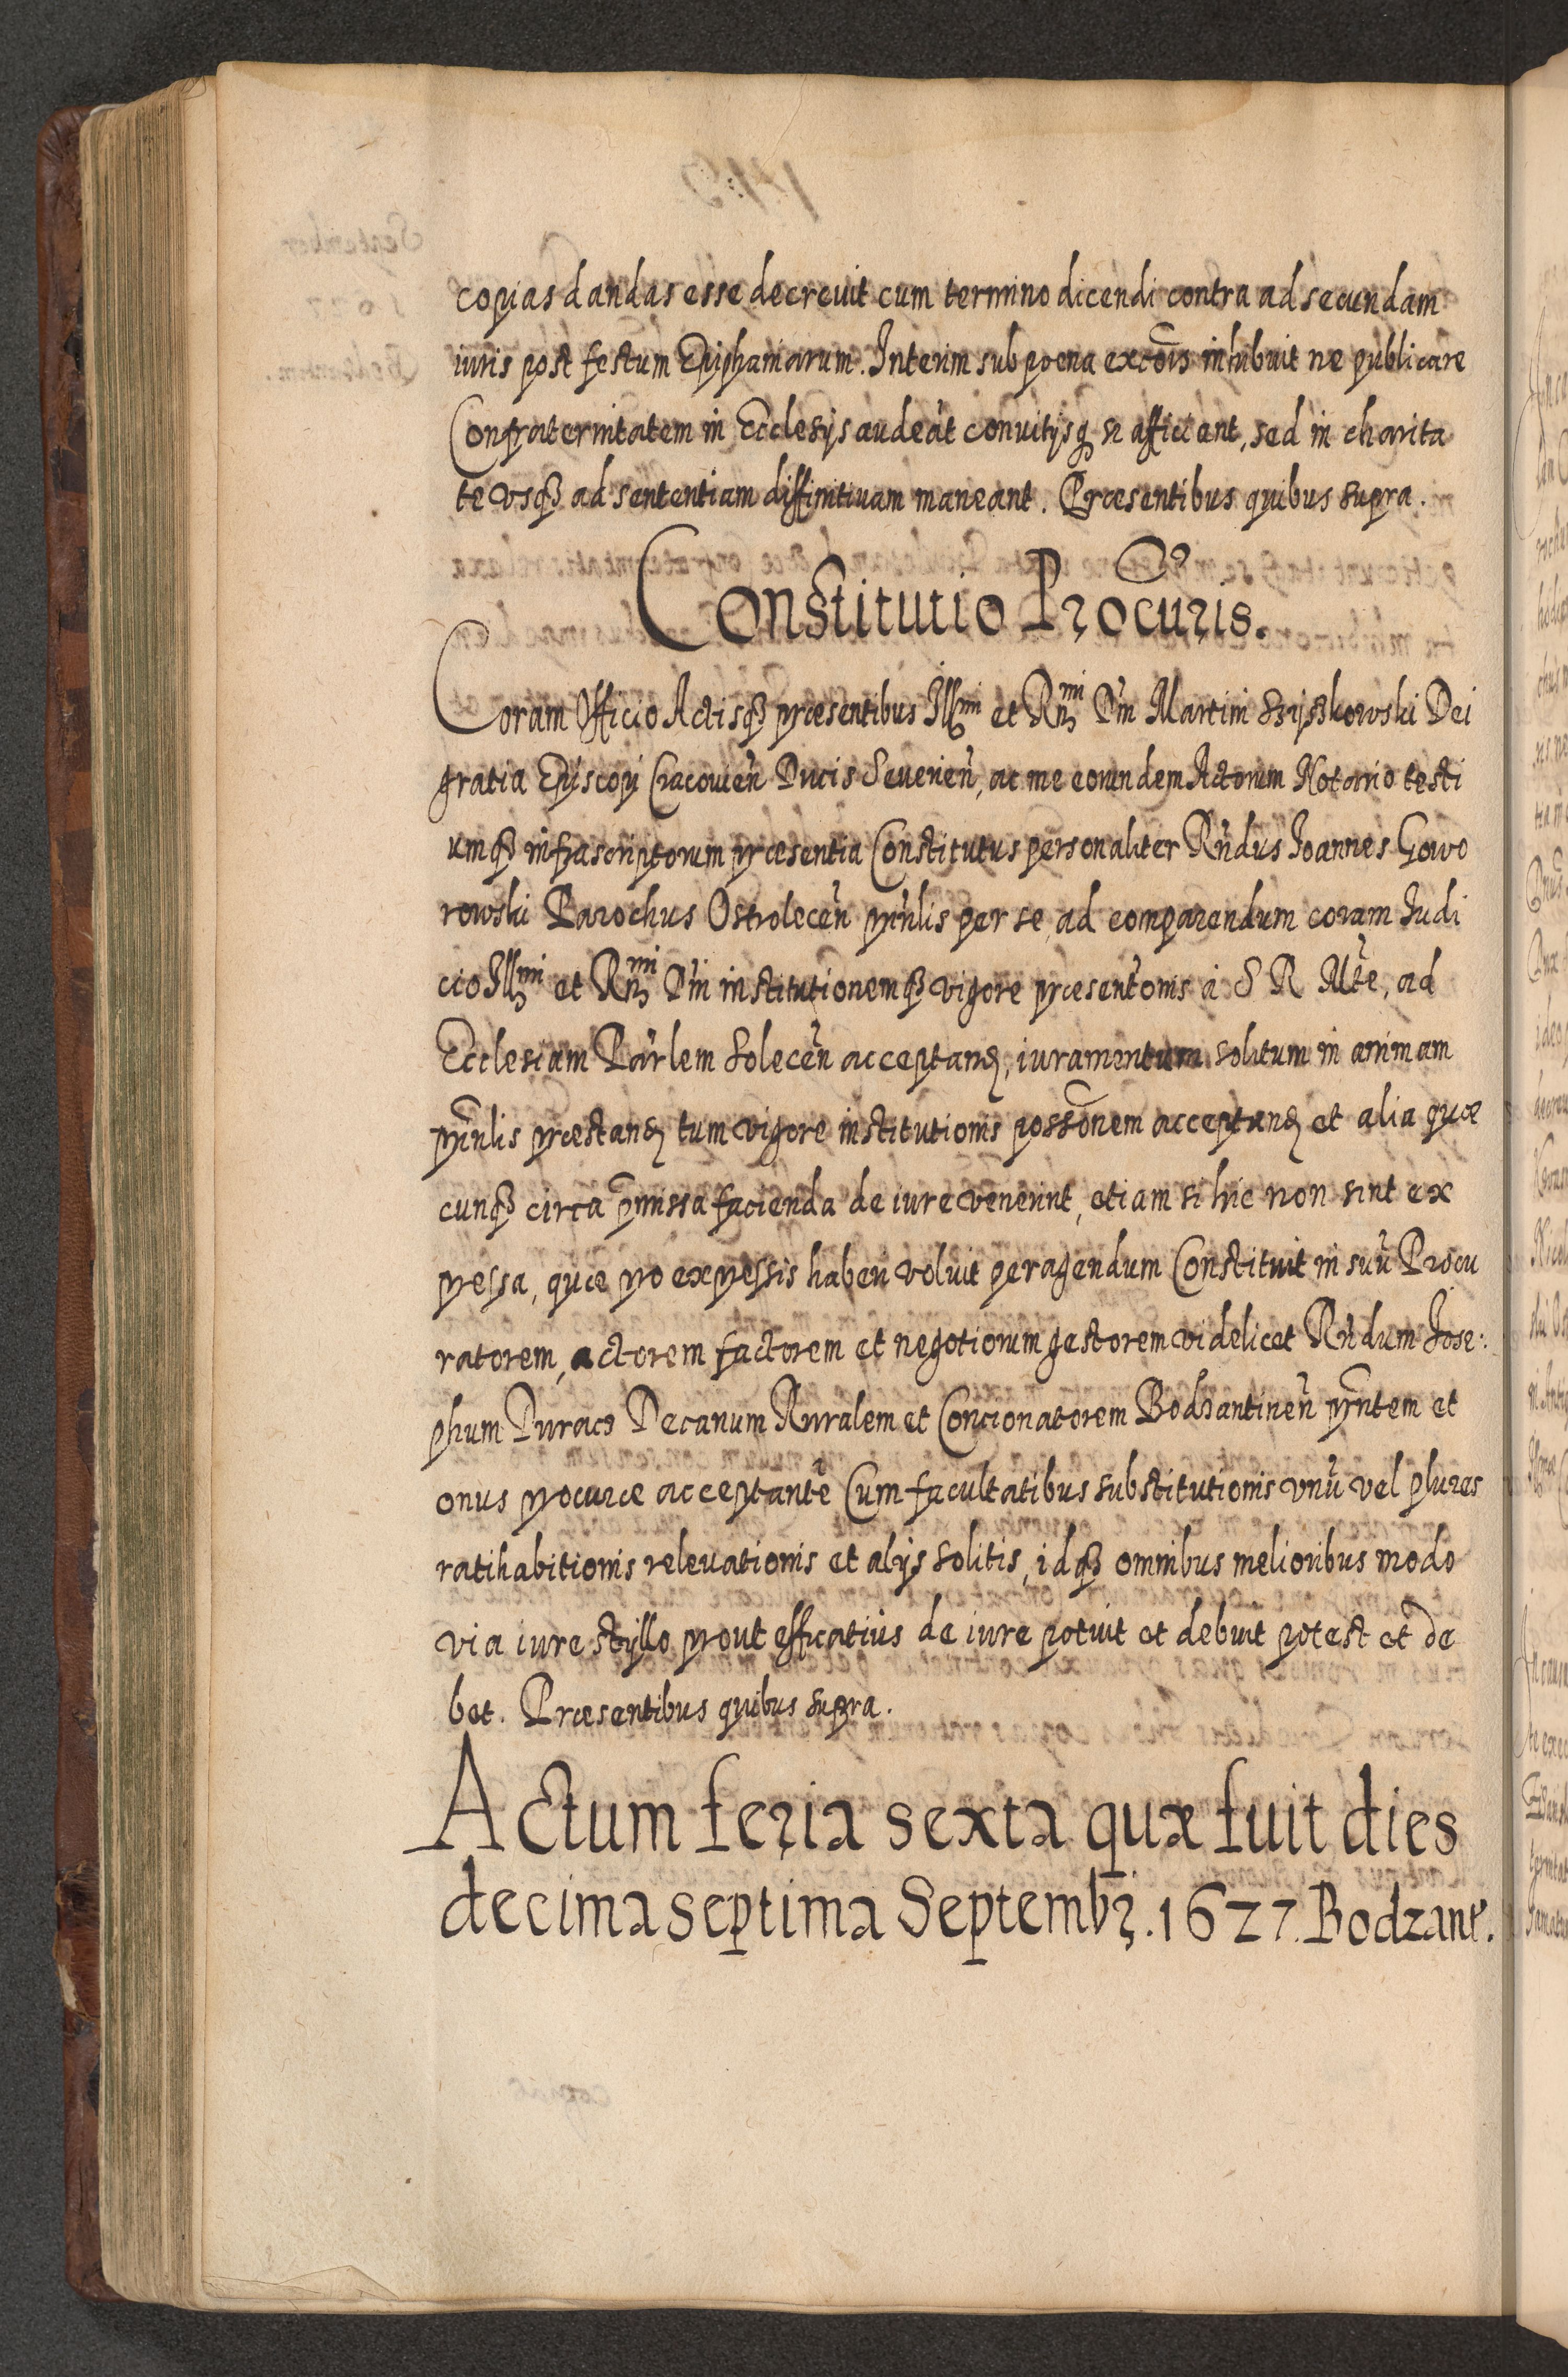 copias dandas esse decrevit cum termino dicendi contra ad secundam
iuris post festum Epiphaniarum. Interim sub poena excõis inhibuit ne publicare
Confraternitatem in Ecclesijs audeãt convitijsq̃ se afficiant, sed in charita
te vsqꝫ ad sententiam diffinitiuam maneant. Præsentibus quibus supra.
Constitutio Procuris.
Coram Officio Actisqꝫ præsentibus Illmi et Rmi Dñi Martini Szyszkowski Dei
gratia Episcopi Cracouieñ Ducis Seuerieñ, ac me eorundem Actorum Notario testi
umqꝫ infrascriptorum præsentia Constitutus personaliter Rñdus Joannes Gowo
rowski Parochus Ostroleceñ prin̄lis per se, ad comparendum coram Judi
cio Illmi et Rmi Dñi institutionemqꝫ vigore præsentõnis à S R Mt̃e, ad
Ecclesiam Par̃lem Soleceñ acceptanꝫ, iuramentum solitum in animam
prin̄lis præstanꝫ tum vigore institutionis possõnem acceptanꝫ et alia quæ
cunqꝫ circa p̃missa facienda de iure venerint, etiam si hic non sint ex
pressa, quæ pro expressis haberi voluit peragendum Constituit in suũ Procu
ratorem, actorem factorem et negotiorum gestorem videlicet Rñdum Jose:
phum Duracz Decanum Ruralem et Concionatorem Bodzantineñ p̃ntem et
onus procuræ acceptantẽ Cum facultatibus substitutionis vnũ vel plures
ratihabitionis releuationis et alijs solitis, idqꝫ omnibus melioribus modo
via iure styllo prout efficatius de iure potuit et debuit potest et de
bet. Præsentibus quibus supra.
Actum feria sexta quæ fuit dies
decima septima Septembr. 1627. Bodzant.